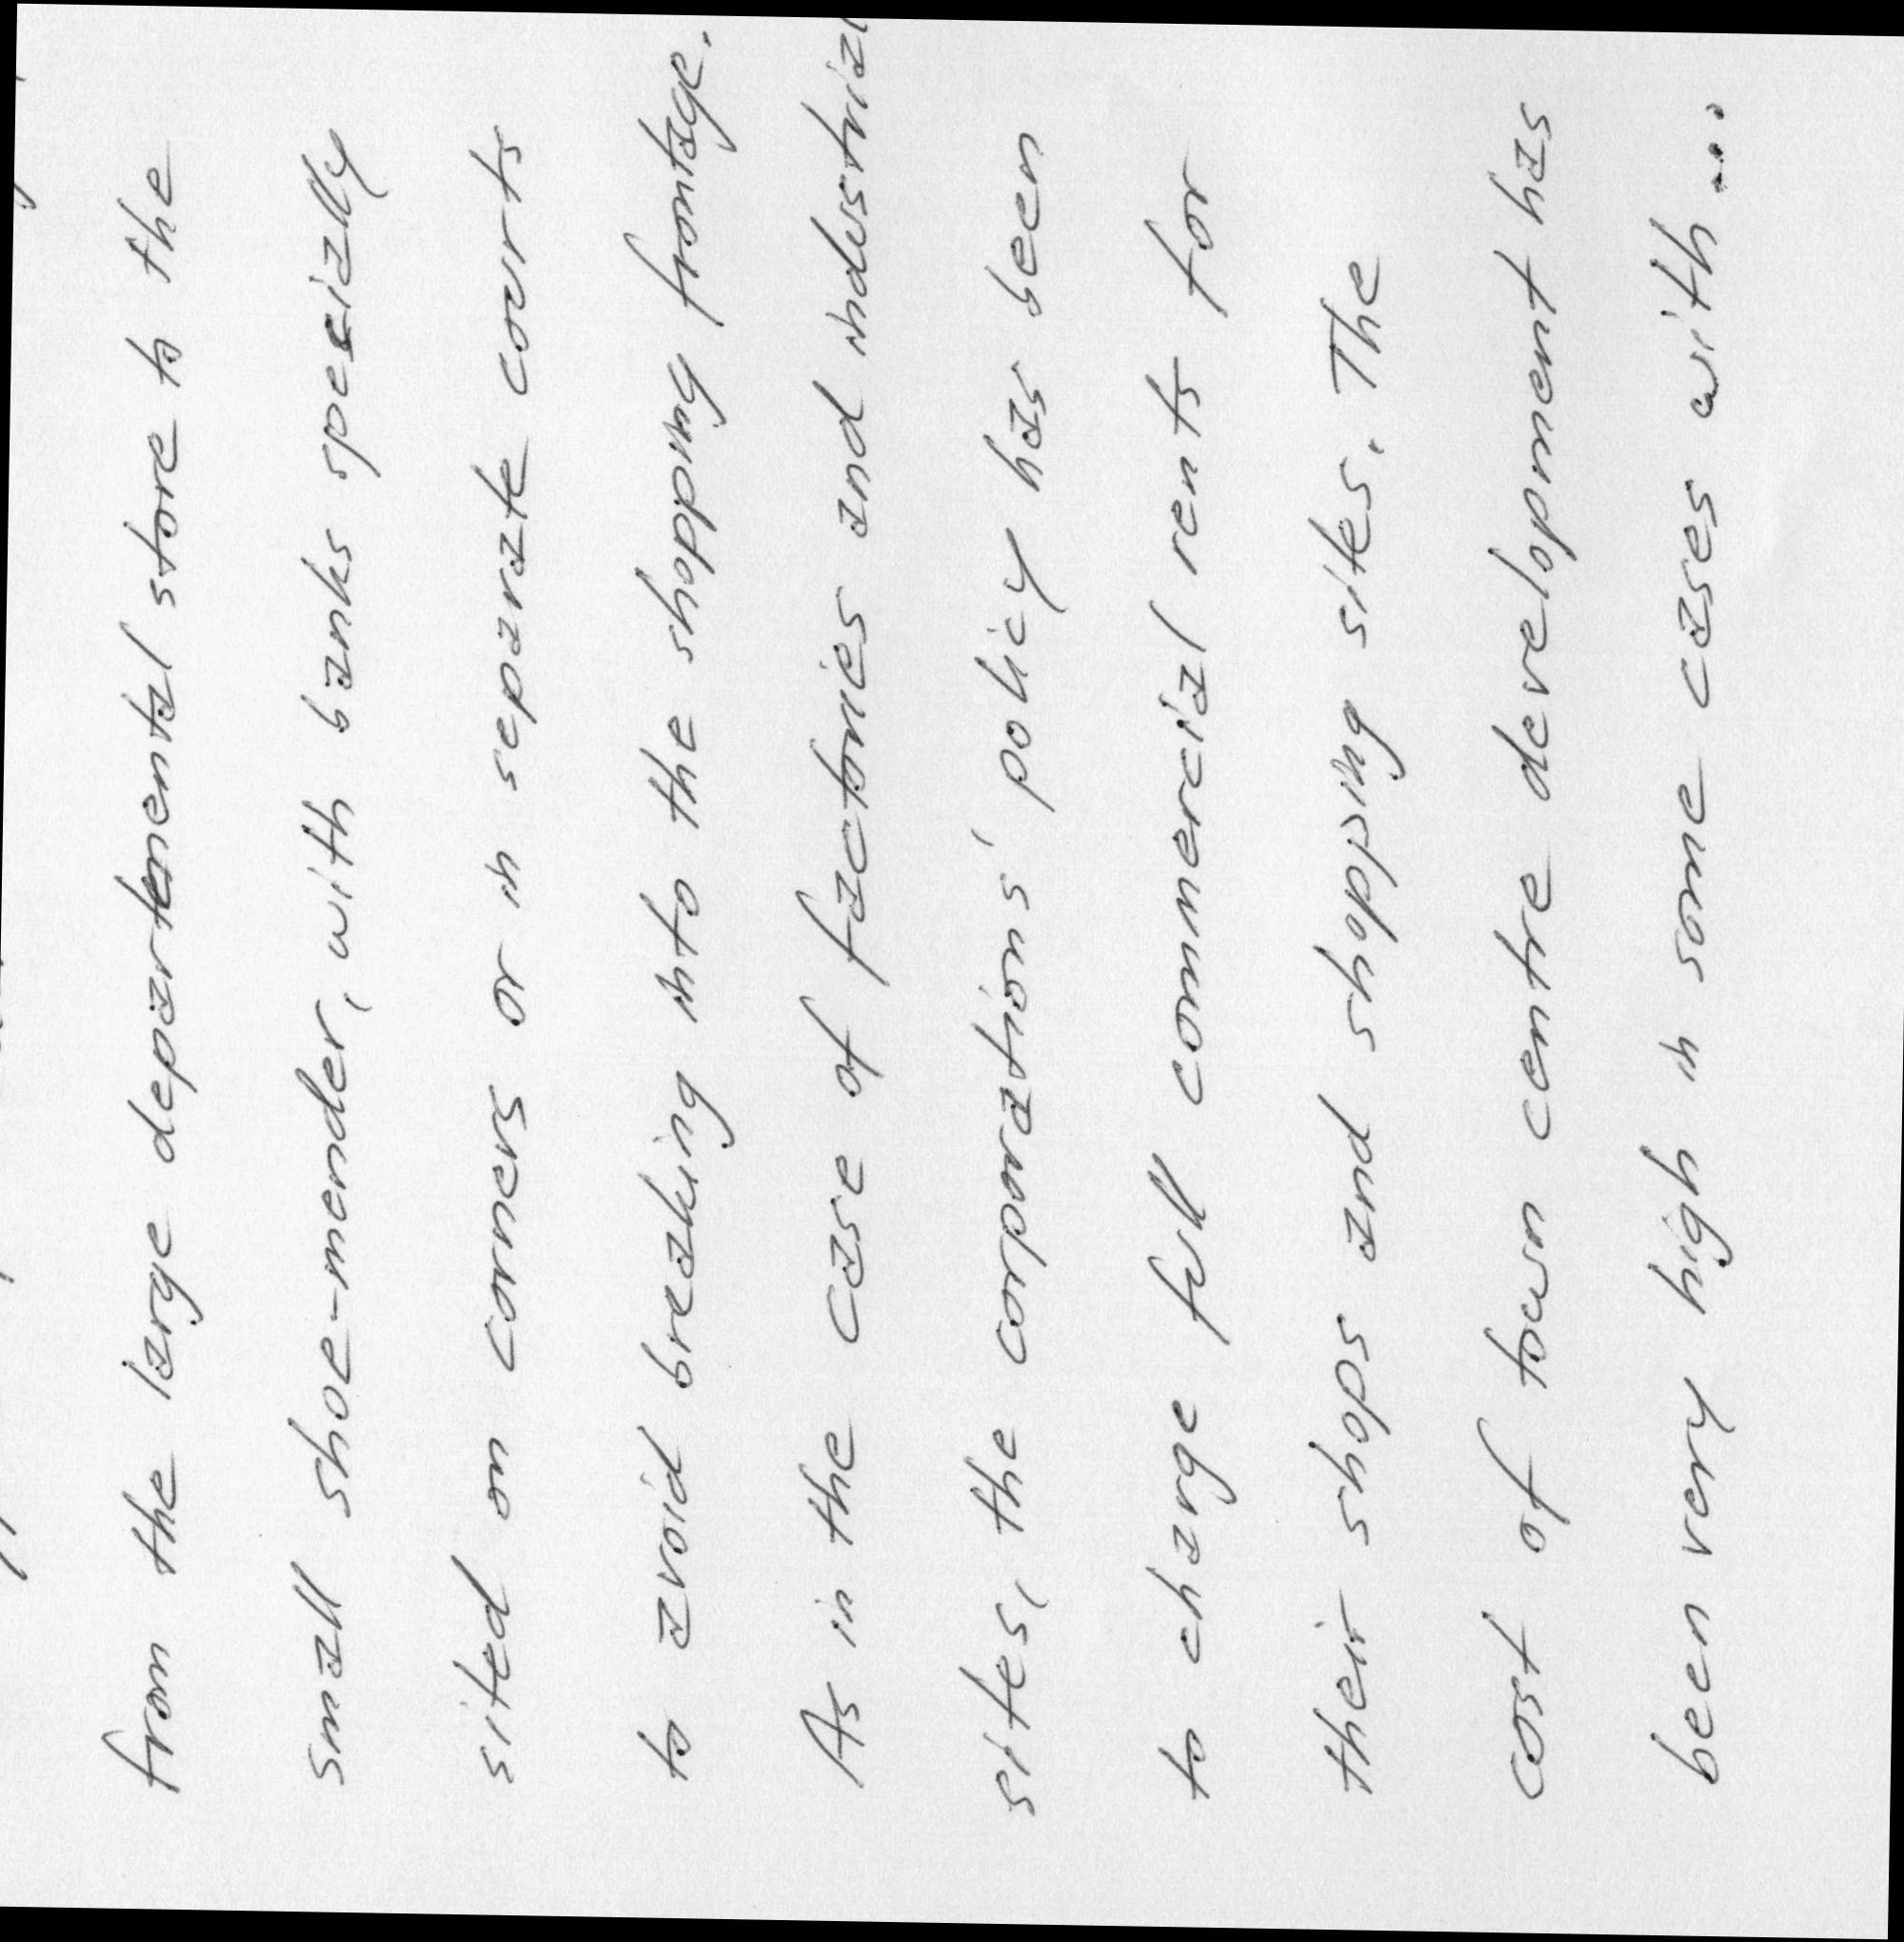 from the large departemental store to the
small shoe-mender, with banks specially
sited on corners or in separate courts
to avoid breaking into the shopping frontage.
As in the case of factories and industrial
sites, the corporations' policy has been
to charge full commercial rents for
their shops and shopping sites. The
cost of town centre development has
been very high in some cases with ...